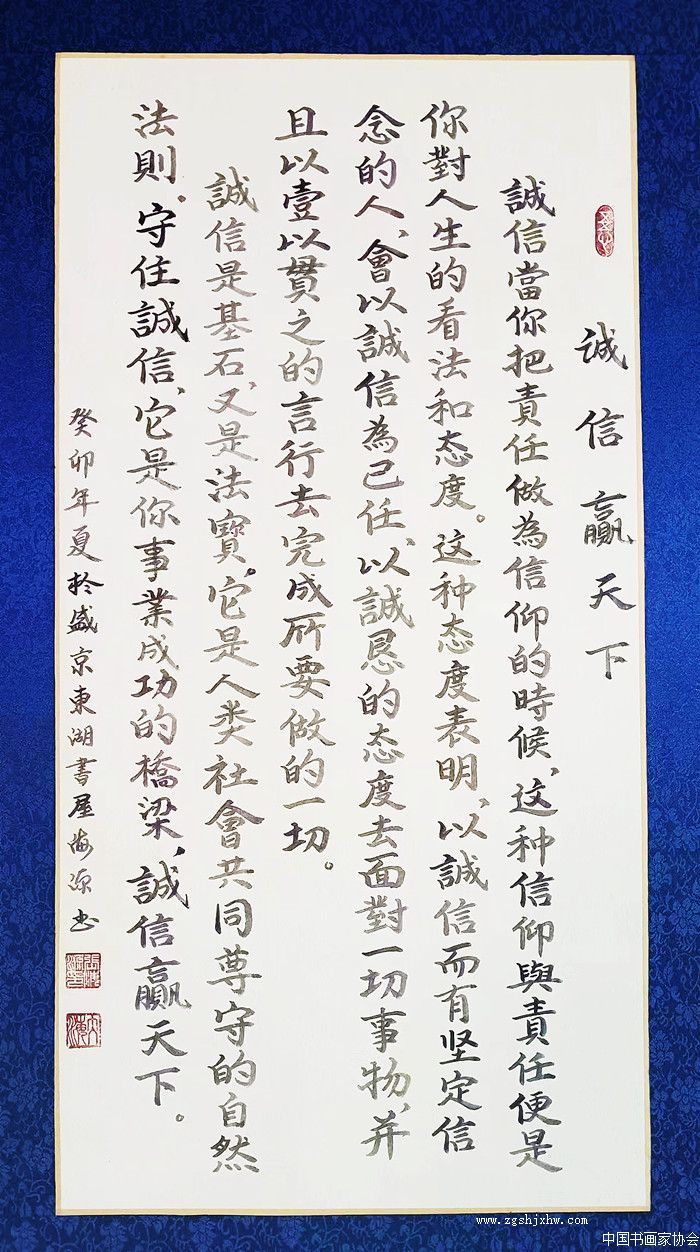 诚信赢天下
誠信當你把責任做為信仰的時候、这种信仰與責任便是
你對人生的看法和态度。这种态度表明、以誠信而有坚定信
念的人、會以誠信為己任、以誠恳的态度去面對一切事物、并
且以壹以貫之的言行去完成所要做的一切。
誠信是基石、又是法寳。它是人类社會共同尊守的自然
法則。守住誠信、它是你事業成功的橋梁、誠信赢天下。
癸卯年夏於盛京東湖書屋海源书
www.zgshjxhw.com
中国书画家协会